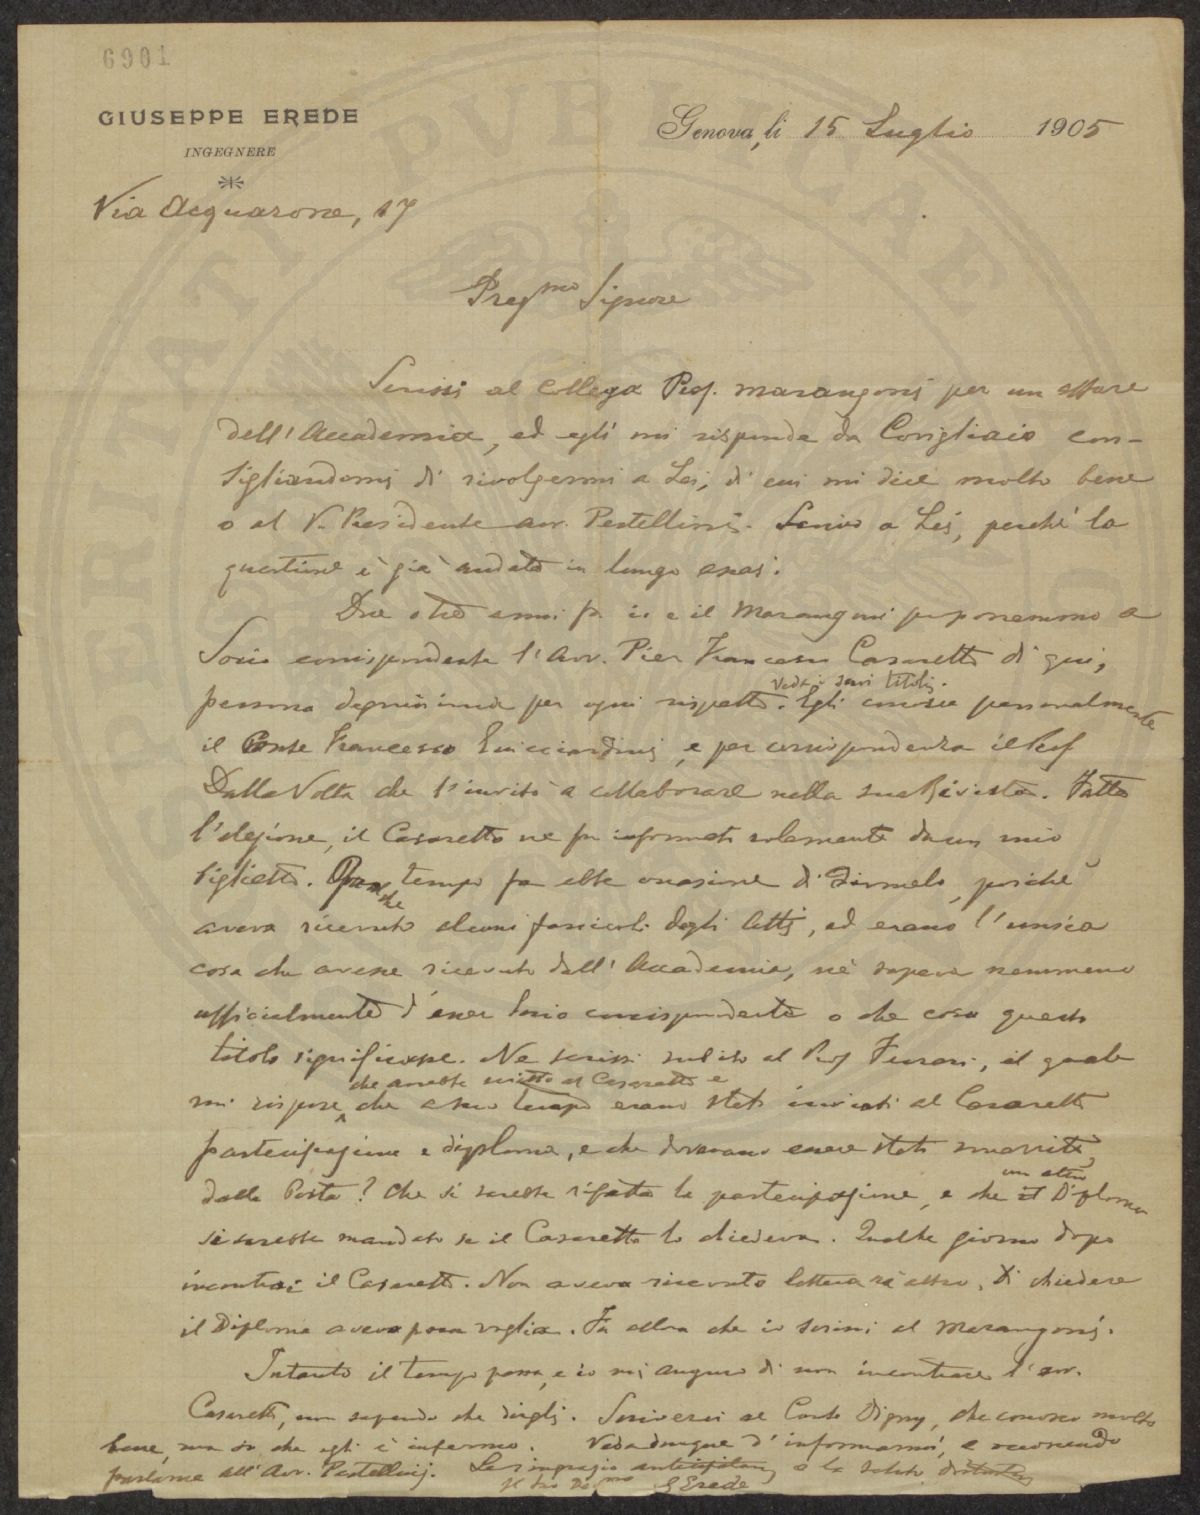 6901
GIUSEPPE EREDE
INGEGNERE
Genova, li 15 Luglio 1905
Via Acquarone, 17
Preg.mo Signore
Scrissi al Collega Prof. Marangoni per un affare
dell'Accademia, ed egli mi risponde da Corigliano con-
sigliandomi di rivolgermi a Lei, di cui mi dice molto bene
o al V. Presidente avv. Pestellini. Scrivo a Lei, perché la
questione è già andata in lungo assai.
Due o tre anni fa io e il Marangoni proponemmo a
Socio corrispondente l'Avv. Pier Francesco Casaretto di qui,
persona degnissima per ogni rispetto. Veda i suoi titoli. Egli conosce personalmente
il Conte Francesco Guicciardini, e per corrispondenza il Prof
Dalla Volta che l'invitò a collaborare nella sua Rivista. Fatta
l'elezione, il Casaretto ne fu informato solamente da un mio
biglietto. Qualche tempo fa ebbe occasione di dirmelo, poiché
aveva ricevuto alcuni fascicoli degli Atti, ed erano l'unica
cosa che avesse ricevuto dall'Accademia, né sapeva nemmeno
ufficialmente d'esser Socio corrispondente o che cosa questo
titolo significasse. Ne scrissi subito al Prof Ferrari, il quale
mi rispose che avrebbe scritto al Casaretto e che a suo tempo erano stati inviati al Casaretto
partecipazione e diploma, e che dovevano essere stati smarriti
dalla Posta? Che si sarebbe rifatta la partecipazione, e che un altro Diploma
si sarebbe mandato se il Casaretto lo chiedeva. Qualche giorno dopo
incontrai il Casaretto. Non aveva ricevuto lettera né altro. Di chiedere
il Diploma aveva poca voglia. Fu allora che io scrissi al Marangoni.
Intanto il tempo passa, e io mi auguro di non incontrare l'avv.
Casaretto, non sapendo che dirgli. Scriverei al Conte Digny, che conosco molto
bene, ma so che egli è infermo. Veda dunque d'informarmi, e occorrendo
parlarne all'Avv. Pestellini. La ringrazio e la saluto
Il Suo Dev.mo GErede